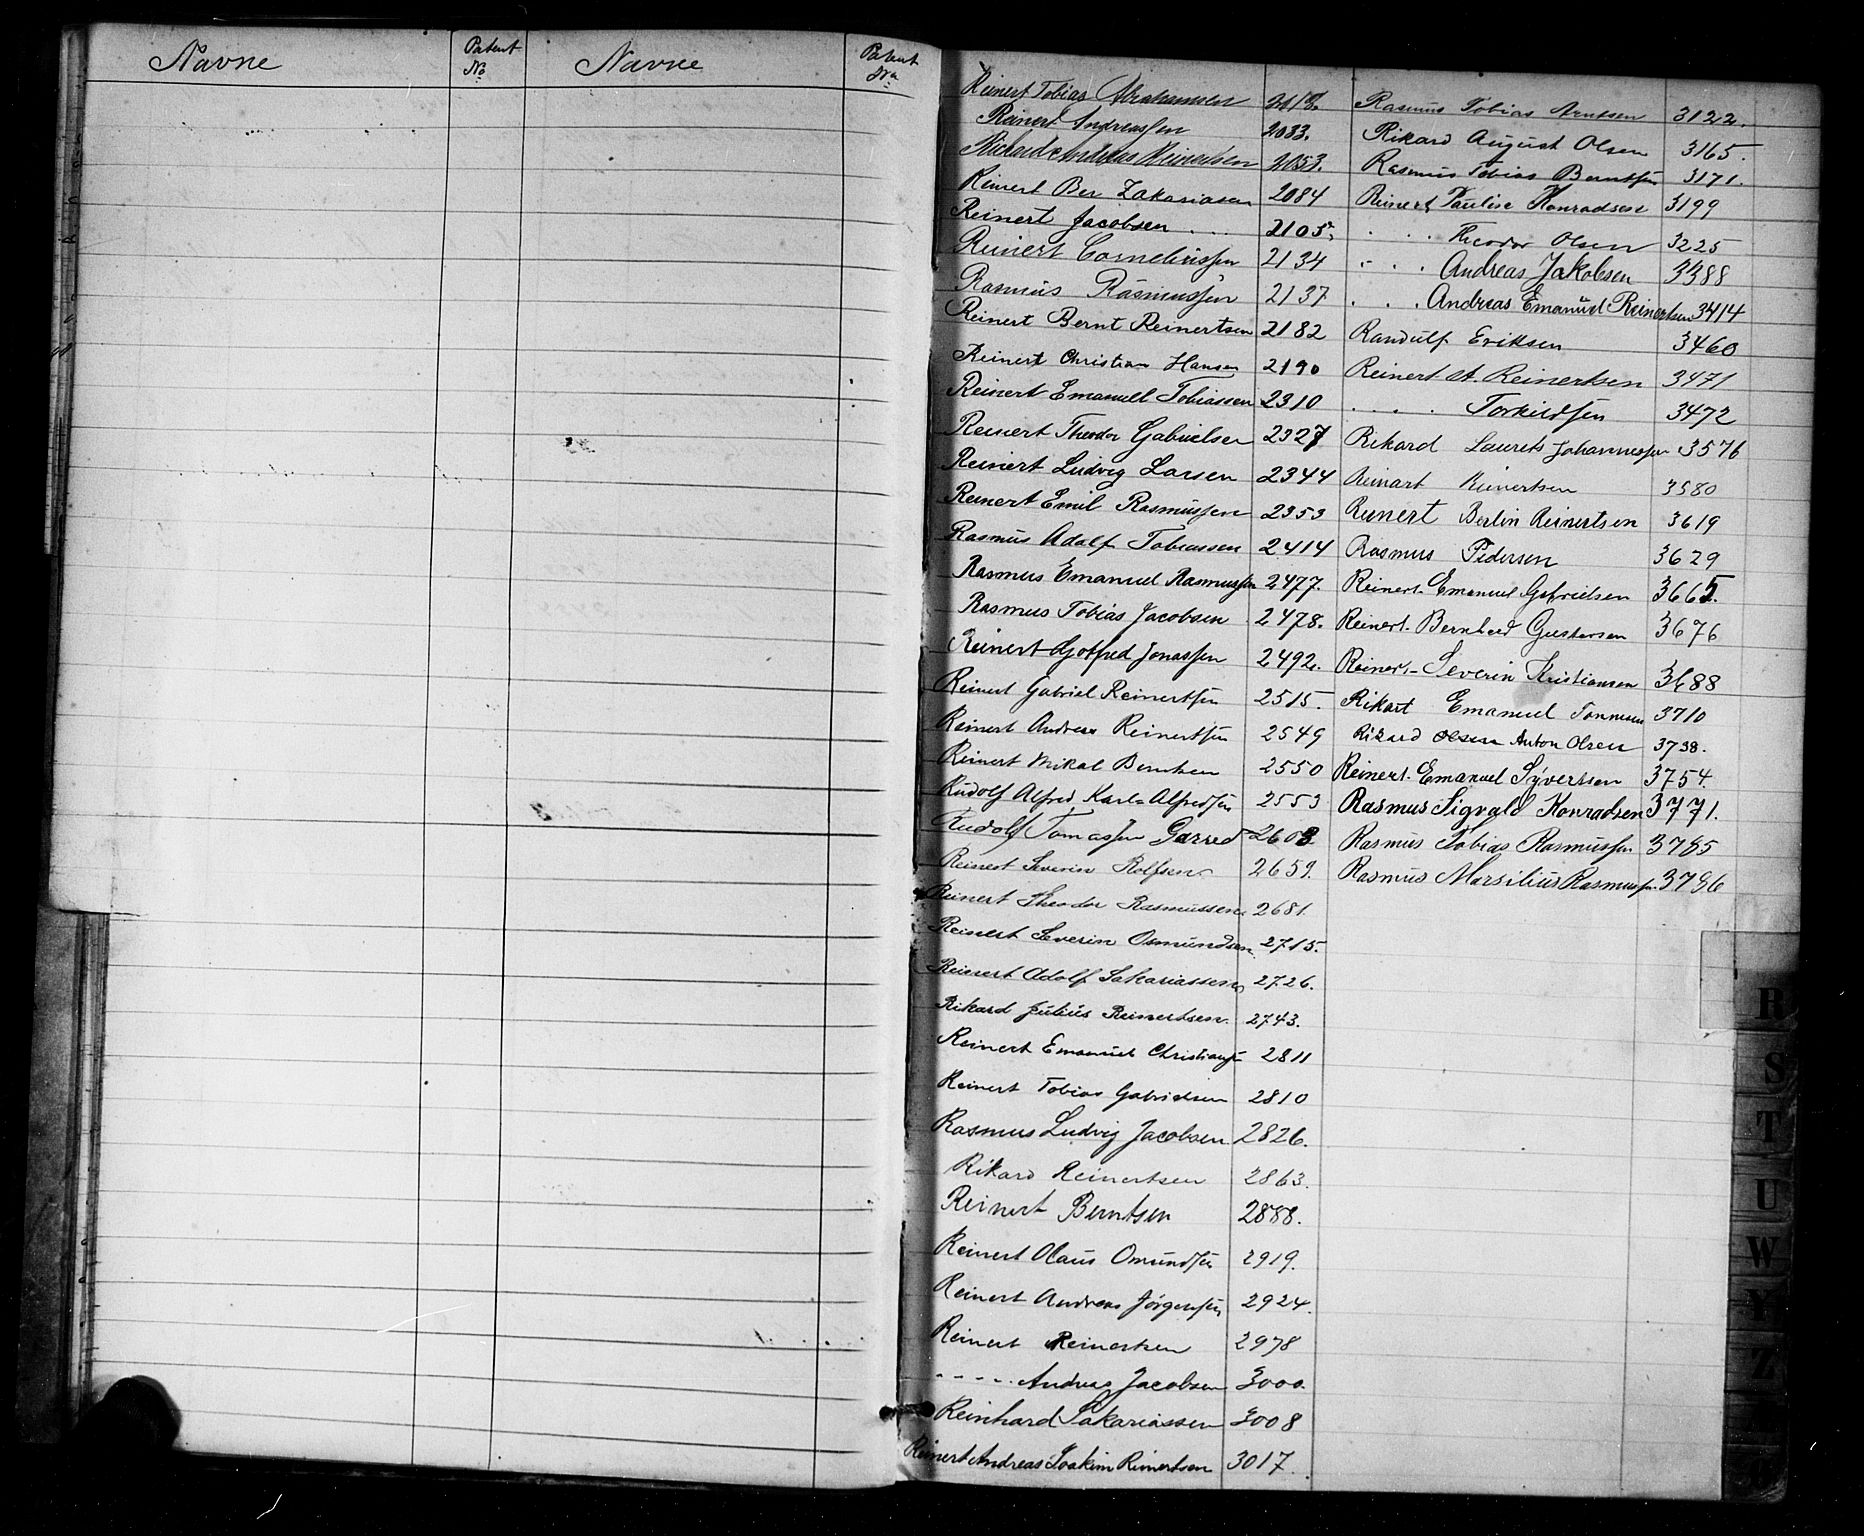 Navne Patent No Navne Patent No
Reinert Tobias Abrahamsen
Reinert Andreassen 2033.
Richard Andreas Reinertsen 2053.
Reinert Ber Zakariasen 2084
Reinert Jacobsen . . . 2105.
Reinert Corneliussen 2134
Rasmus Rasmussen 2137
Reinert Bernt Reinertsen 2182
Reinert Christian Hansen 2190
Reinert Emanuel Tobiassen 2310
Reinert Theodor Gabrielsen 2327
Reinert Ludvig Larsen 2344
Reinert Emil Rasmussen 2353
Rasmus Adolf Tobiassen 2414
Rasmus Emanuel Rasmussen 2477.
Rasmus Tobias Jacobsen 2478.
Reinert Gotfred Jonassen 2492.
Reinert Gabriel Reinertsen 2515.
Reinert Andreas Reinertsen 2549
Reinert Mikal Berntsen 2550
Rudolf Alfred Karl Alfredsen 2553
Rudolf Tomassen Garred 2603
Reinert Severin Rolfsen 2659.
Reinert Theodor Rasmussen 2681.
Reinert Severin Osmundsen 2715.
Reinert Adolf Sakariassen 2726.
Rikard Julius Reinertsen 2743.
Reinert Emanuel Christiansen 2811
Reinert Tobias Gabrielsen 2810
Rasmus Ludvig Jacobsen 2826.
Rikard Reinertsen 2863.
Reinert Berntsen 2888.
Reinert Olaus Omundsen 2919.
Reinert Andreas Jörgensen 2924.
Reinert Reinertsen 2978
- - - - . Andreas Jacobsen 3000.
Reinhard Sakariassen 3008
Reinert Andreas Joakim Reinertsen 3017.
Rasmus Tobias Arntsen 3122.
Rikard August Olsen 3165.
Rasmus Tobias Berntsen 3171.
Reinert Pauline Konradsen 3199
. . . Theodor Olsen 3225
. . . Andreas Jakobsen 3388
. . . Andreas Emanuel Reinertsen 3414
Randulf Eriksen 3460
Reinert A. Reinertsen 3471
. . . . Torkildsen 3472
Rikard Laurits Johannessen 3576
Reinart Reinertsen 3580
Reinert Berlin Reinertsen 3619
Rasmus Pedersen 3629
Reinert Emanuel Gabrielsen 3665.
Reinert Bernhard Gustavsen 3676
Reinert Severin Kristiansen 3688
Rikart Emanuel Tønnesen 3710
Rikard Olsen Anton Olsen 3738.
Reinert Emanuel Syvertsen 3754.
Rasmus Sigvald Konradsen 3771.
Rasmus Tobias Rasmussen 3785
Rasmus Marsilius Rasmussen 3796
R
S
T
U
W
Y
Z